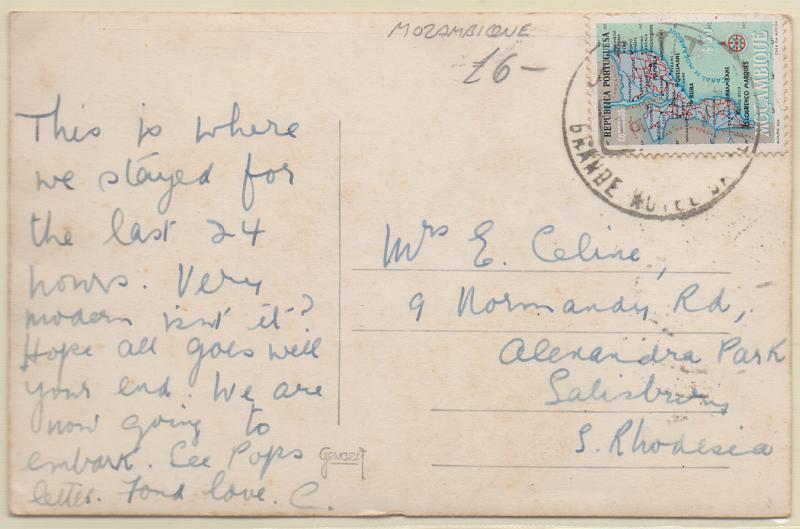 MOZAMBIQUE
£6-
REPÚBLICA PORTUGUESA
CANAL DE MOÇAMBIQUE
LOURENÇO MARQUES
MOÇAMBIQUE
GRANDE HOTEL
This is where
we stayed for
the last 24
hours. Very
modern isn't it?
Hope all goes well
your end. We are
now going to
embark. See Pops
letter. Fond love. C.
Gevaert
Mrs E. Celine,
9 Normandy Rd,
Alexandra Park
Salisbury
S. Rhodesia